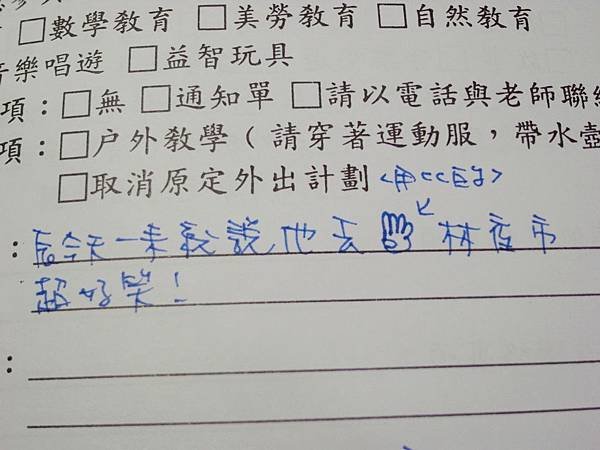 □數學教育 □美勞教育 □自然教育
音樂唱遊 □益智玩具
項：□無 □通知單 □請以電話與老師聯絡
項：□户外教學（請穿著運動服，帶水壺
□取消原定外出計劃
：今天一來就說他去 林夜市
超好笑！
：